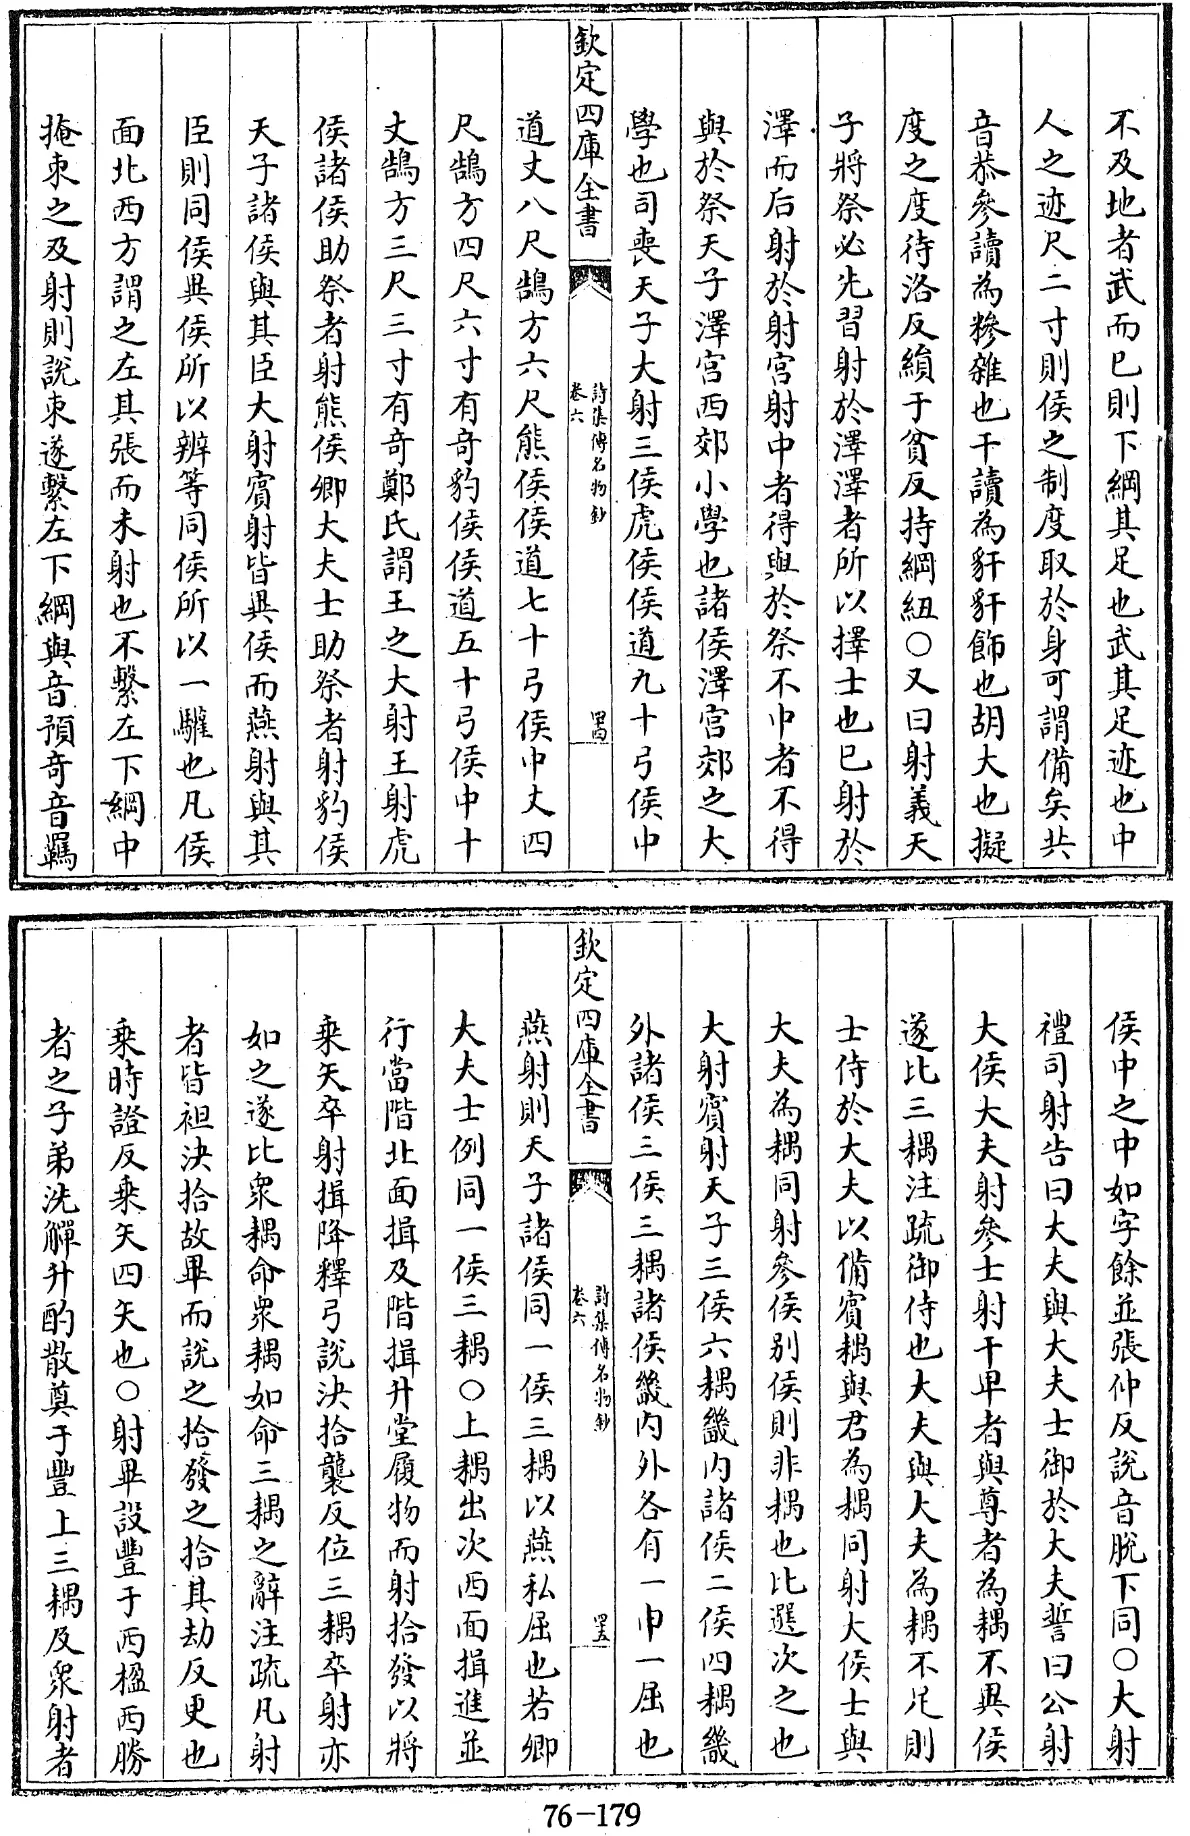 不及地者武而已則下綱其足也武其足迹也中
人之迹尺二寸則侯之制度取於身可謂備矣共
音恭參讀為糝雜也干讀為豻豻飾也胡大也擬
度之度待洛反縜于貧反持綱紐○又曰射義天
子將祭必先習射於澤澤者所以擇士也已射於
澤而后射於射宮射中者得與於祭不中者不得
與於祭天子澤宮西郊小學也諸侯澤宮郊之大
學也司裘天子大射三侯虎侯侯道九十弓侯中
欽定四庫全書
詩集傳名物鈔
卷六
四四
道丈八尺鵠方六尺熊侯侯道七十弓侯中丈四
尺鵠方四尺六寸有奇豹侯侯道五十弓侯中十
丈鵠方三尺三寸有奇鄭氏謂王之大射王射虎
侯諸侯助祭者射熊侯卿大夫士助祭者射豹侯
天子諸侯與其臣大射賓射皆異侯而燕射與其
臣則同侯異侯所以辨等同侯所以一驩也凡侯
面北西方謂之左其張而未射也不繫左下綱中
掩束之及射則說束遂繫左下綱與音預奇音羈
侯中之中如字餘並張仲反說音脫下同○大射
禮司射告曰大夫與大夫士御於大夫誓曰公射
大侯大夫射參士射干卑者與尊者為耦不異侯
遂比三耦注疏御侍也大夫與大夫為耦不足則
士侍於大夫以備賓耦與君為耦同射大侯士與
大夫為耦同射參侯別侯則非耦也比選次之也
大射賓射天子三侯六耦畿內諸侯二侯四耦畿
外諸侯三侯三耦諸侯畿內外各有一申一屈也
欽定四庫全書
詩集傳名物鈔
卷六
四五
燕射則天子諸侯同一侯三耦以燕私屈也若卿
大夫士例同一侯三耦○上耦出次西面揖進並
行當階北面揖及階揖升堂履物而射拾發以將
乘矢卒射揖降釋弓說決拾襲反位三耦卒射亦
如之遂比衆耦命衆耦如命三耦之辭注疏凡射
者皆袒決拾故畢而說之拾發之拾其劫反更也
乘時證反乘矢四矢也○射畢設豐于西楹西勝
者之子弟洗觶升酌散奠于豐上三耦及衆射者
76-179